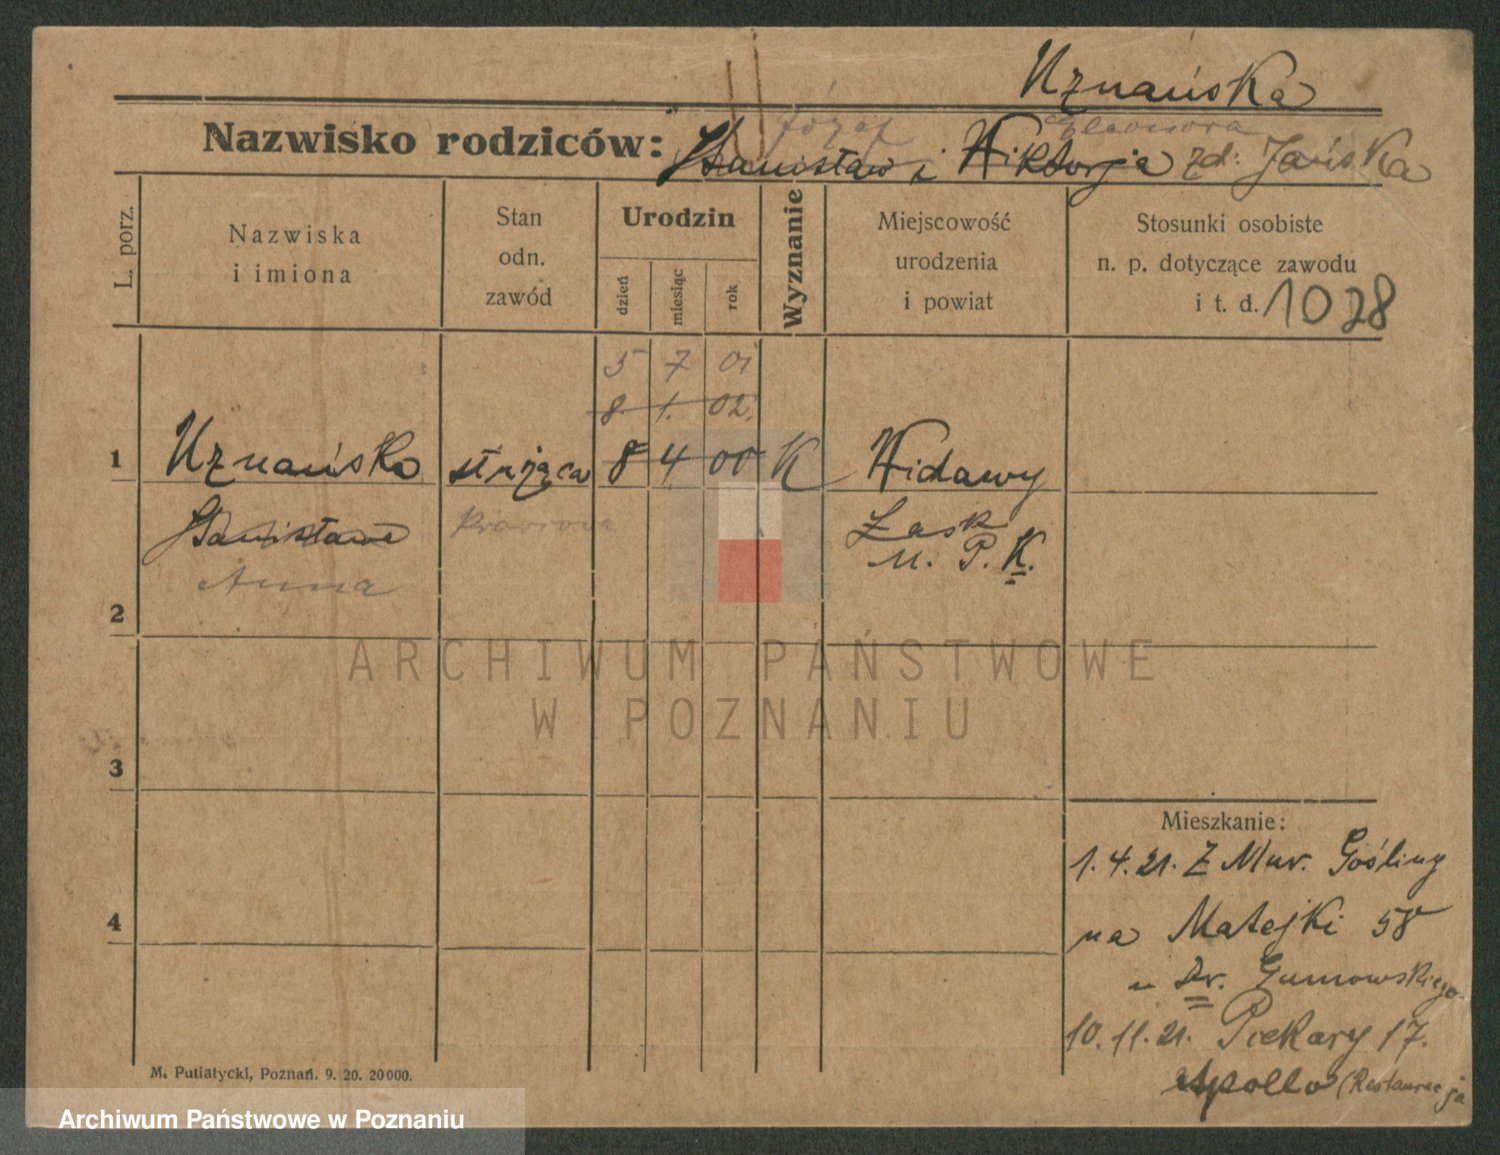 Uznańska
Józef Eleonora
Nazwisko rodziców: Stanisław i Wiktorja zd: Jańska
L. porz.
Nazwiska
i imiona
Stan
odn.
zawód
Urodzin
dzień
miesiąc
rok
Wyznanie
Miejscowość
urodzenia
i powiat
Stosunki osobiste
n. p. dotyczące zawodu
i t. d. 1028
5 7 01
8. 1. 02.
1 Uznańska służąca 8 4 00 K Widawy
Stanisława Łask
M. P. K.
Anna
2
3
4
Mieszkanie:
1.4.21. Z Mur. Gośliny
na Matejki 58
u Dr. Gumowskiego
10.11.21. Piekary 17.
Apollo (Restauracja
M. Putiatycki, Poznań. 9. 20. 20000.
ARCHIWUM PAŃSTWOWE
W POZNANIU
Archiwum Państwowe w Poznaniu